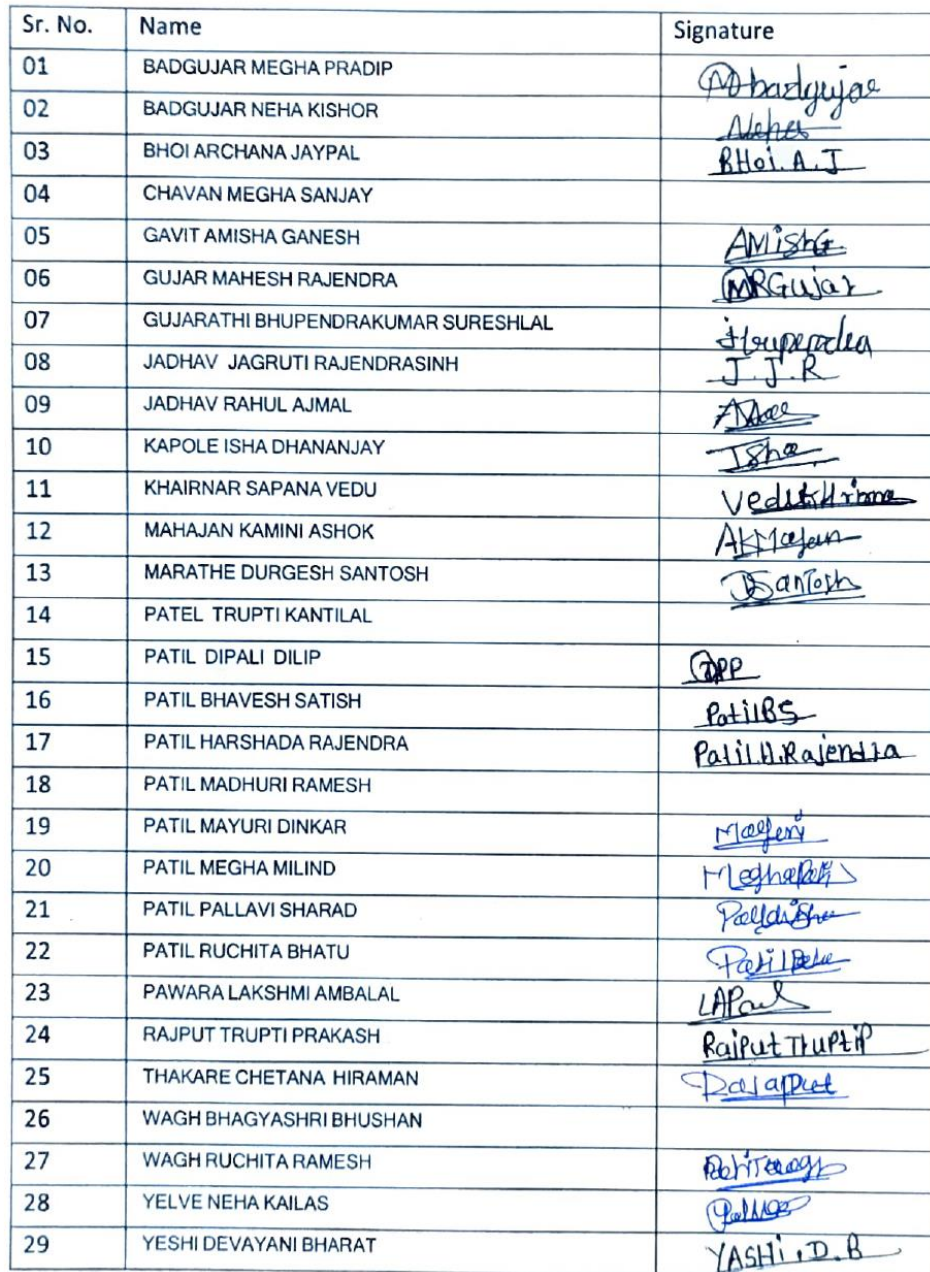 Sr. No. Name Signature
01 BADGUJAR MEGHA PRADIP Mbadgujar
02 BADGUJAR NEHA KISHOR Neha
03 BHOI ARCHANA JAYPAL BHoi. A. J
04 CHAVAN MEGHA SANJAY
05 GAVIT AMISHA GANESH AMishG
06 GUJAR MAHESH RAJENDRA MRGujar
07 GUJARATHI BHUPENDRAKUMAR SURESHLAL
08 JADHAV JAGRUTI RAJENDRASINH J. J. R
09 JADHAV RAHUL AJMAL
10 KAPOLE ISHA DHANANJAY Isha
11 KHAIRNAR SAPANA VEDU
12 MAHAJAN KAMINI ASHOK
13 MARATHE DURGESH SANTOSH DSantosh
14 PATEL TRUPTI KANTILAL
15 PATIL DIPALI DILIP
16 PATIL BHAVESH SATISH PatilBS
17 PATIL HARSHADA RAJENDRA Patil.H.Rajendra
18 PATIL MADHURI RAMESH
19 PATIL MAYURI DINKAR
20 PATIL MEGHA MILIND
21 PATIL PALLAVI SHARAD
22 PATIL RUCHITA BHATU
23 PAWARA LAKSHMI AMBALAL
24 RAJPUT TRUPTI PRAKASH Rajput TruptiP
25 THAKARE CHETANA HIRAMAN
26 WAGH BHAGYASHRI BHUSHAN
27 WAGH RUCHITA RAMESH
28 YELVE NEHA KAILAS
29 YESHI DEVAYANI BHARAT YASHi . D. B